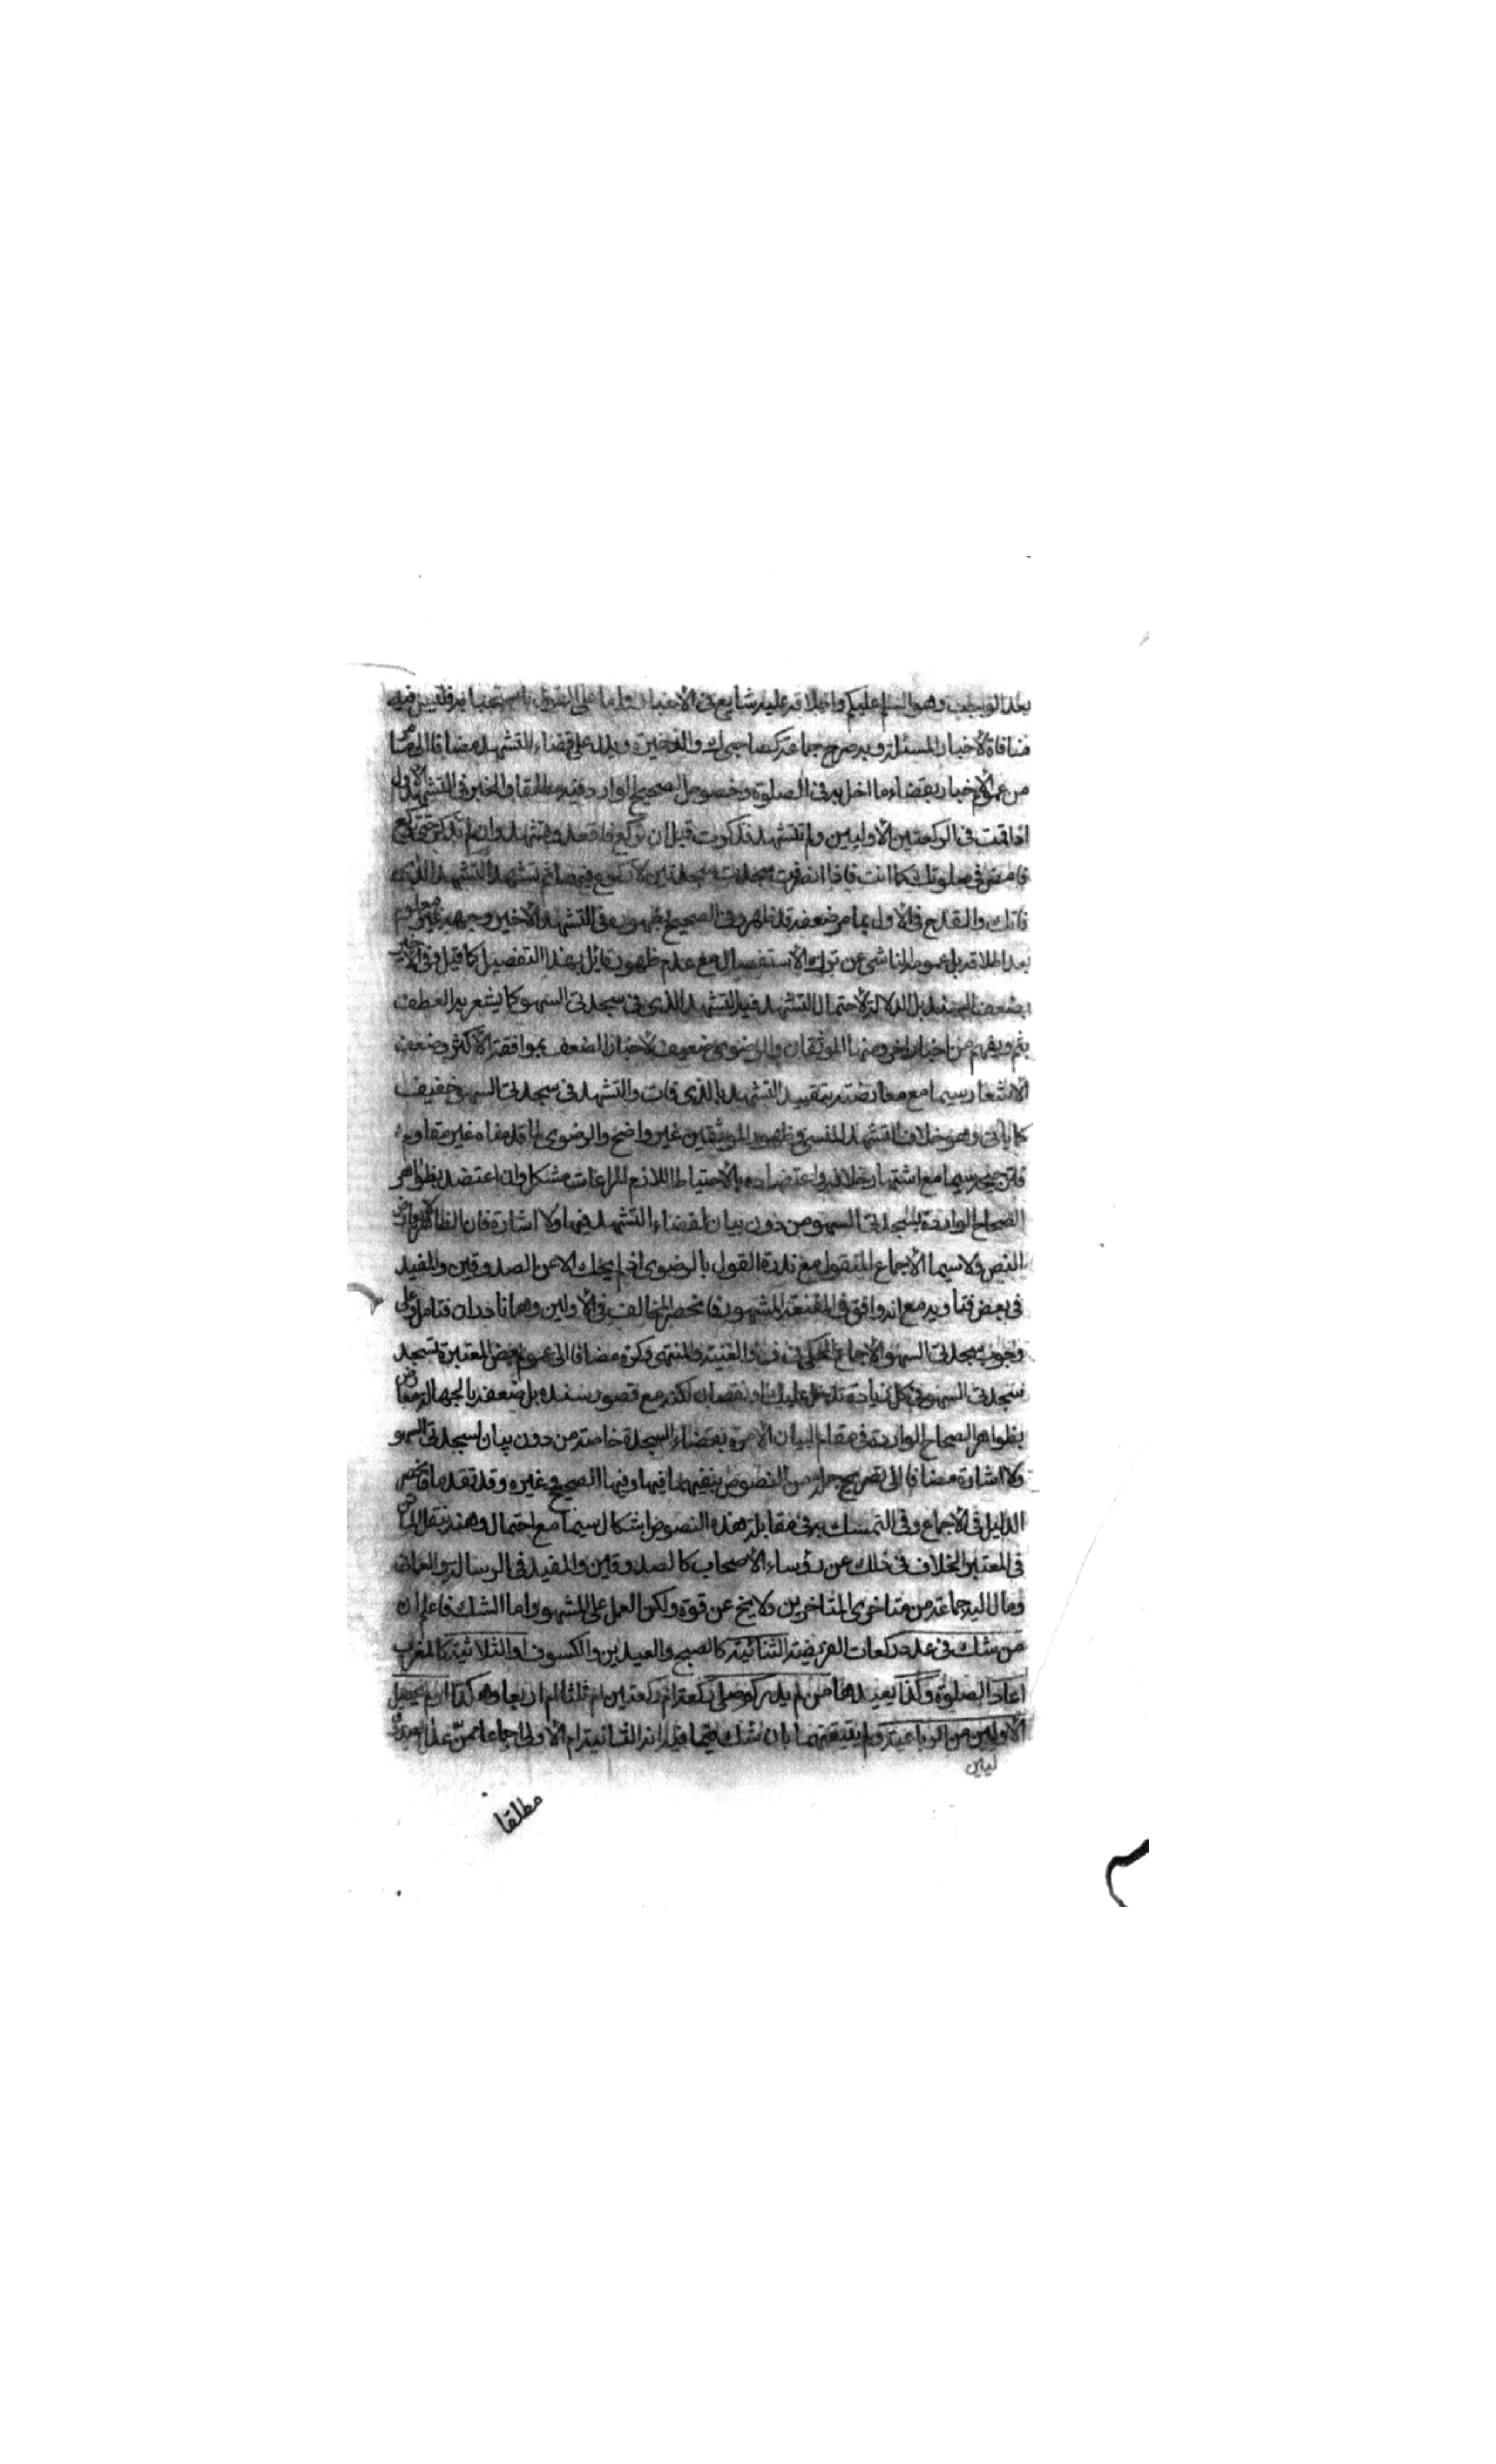 بهذا الوجب وهو السلم عليكم واطلاقه عليه شايع في الاخبار واما على القول باستحبابه فليس فيه
منافاة لاخبار المسئلة وبه صرح جماعة كصاحبي ك والذخيرة ويدل على قضاء التشهد مضافا الى ما مر
من عموم الاخبار بقضاء ما اخل به في الصلوة وخصوص الصحيح الوارد فيه مطلقا والخبر في التشهد الاول
اذا قمت في الركعتين الاوليين ولم تتشهد فذكرت قبل ان تركع فاقعد وتشهد وان لم تذكر حتى تركع
فامض في صلوتك كما انت فاذا انصرفت سجدت سجدتين لا ركوع فيهما ثم تشهد التشهد الذي
فاتك والقدح في الاول بما مر ضعفه قد ظهر وفي الصحيح بظهوره في التشهد الاخير وجهه غير معلوم
بعد اطلاقه بل عمومه الناشي عن ترك الاستفصال مع عدم ظهور قائل بهذا التفصيل كما قيل وفي الاخير
بضعف السند بل الدلالة لاحتمال التشهد فيه التشهد الذي في سجدتي السهو كما يشعر به العطف
بثم ويفهم من اخبار اخر ومنها الموثقان والرضوي ضعيف لانجبار الضعف بموافقة الاكثر وضعف
الاشعار سيما مع معارضته بتقييد التشهد بالذي فات والتشهد في سجدتي السهو خفيف
كما ياتي وهو خلاف التشهد المنسي وظهور الموثقين غير واضح والرضوي لما قدمناه غير مقاوم
فترجيحه سيما مع اشتهار خلافه واعتضاده بالاحتياط اللازم المراعات مشكل وان اعتضد بظواهر
الصحاح الواردة بسجدتي السهو من دون بيان لقضاء التشهد فيها ولا اشارة فان الظاهر لا يعارض
النص ولا سيما الاجماع المنقول مع ندرة القول بالرضوي اذ لم يحك الا عن الصدوقين والمفيد
في بعض فتاويه مع انه وافق في المقنعة المشهور فانحصر المخالف في الاولين وهما نادران فتامل وعلى
وجوب سجدتي السهو الاجماع المحكي في ف والغنية والمنتهى وكرة مضافا الى عموم بعض المعتبرة تسجد
سجدتي السهو في كل زيادة تدخل عليك او نقصان لكنه مع قصور سنده بل ضعفه بالجهالة معارض
بظواهر الصحاح الواردة في مقام البيان الامرة بقضاء السجدة خاصة من دون بيان لسجدتي السهو
ولا اشارة مضافا الى تصريح جملة من النصوص بنفيهما فيها وفيها الصحيح وغيره وقد تقدما فانحصر
الدليل في الاجماع وفي التمسك به في مقابلة هذه النصوص اشكال سيما مع احتمال وهنه بنقل الماتن
في المعتبر الخلاف في ذلك عن رؤساء الاصحاب كالصدوقين والمفيد في الرسالة والعماني
ومال اليه جماعة من متاخري المتاخرين ولا يخ عن قوة ولكن العمل على المشهور واما الشك فاعلم ان
من شك في عدد ركعات الفريضة الثنائية كالصبح والعيدين والكسوف او الثلاثية كالمغرب
اعاد الصلوة وكذا يعيدها من لم يدر كم صلى ركعة ام ركعتين ام ثلثا ام اربعا وهكذا او لم يحصل
الاوليين من الرباعية ولم يتيقنهما بان شك فيما فيه انه الثانية ام الاولى اجماعا ممن عدا الصدوق
مطلقا